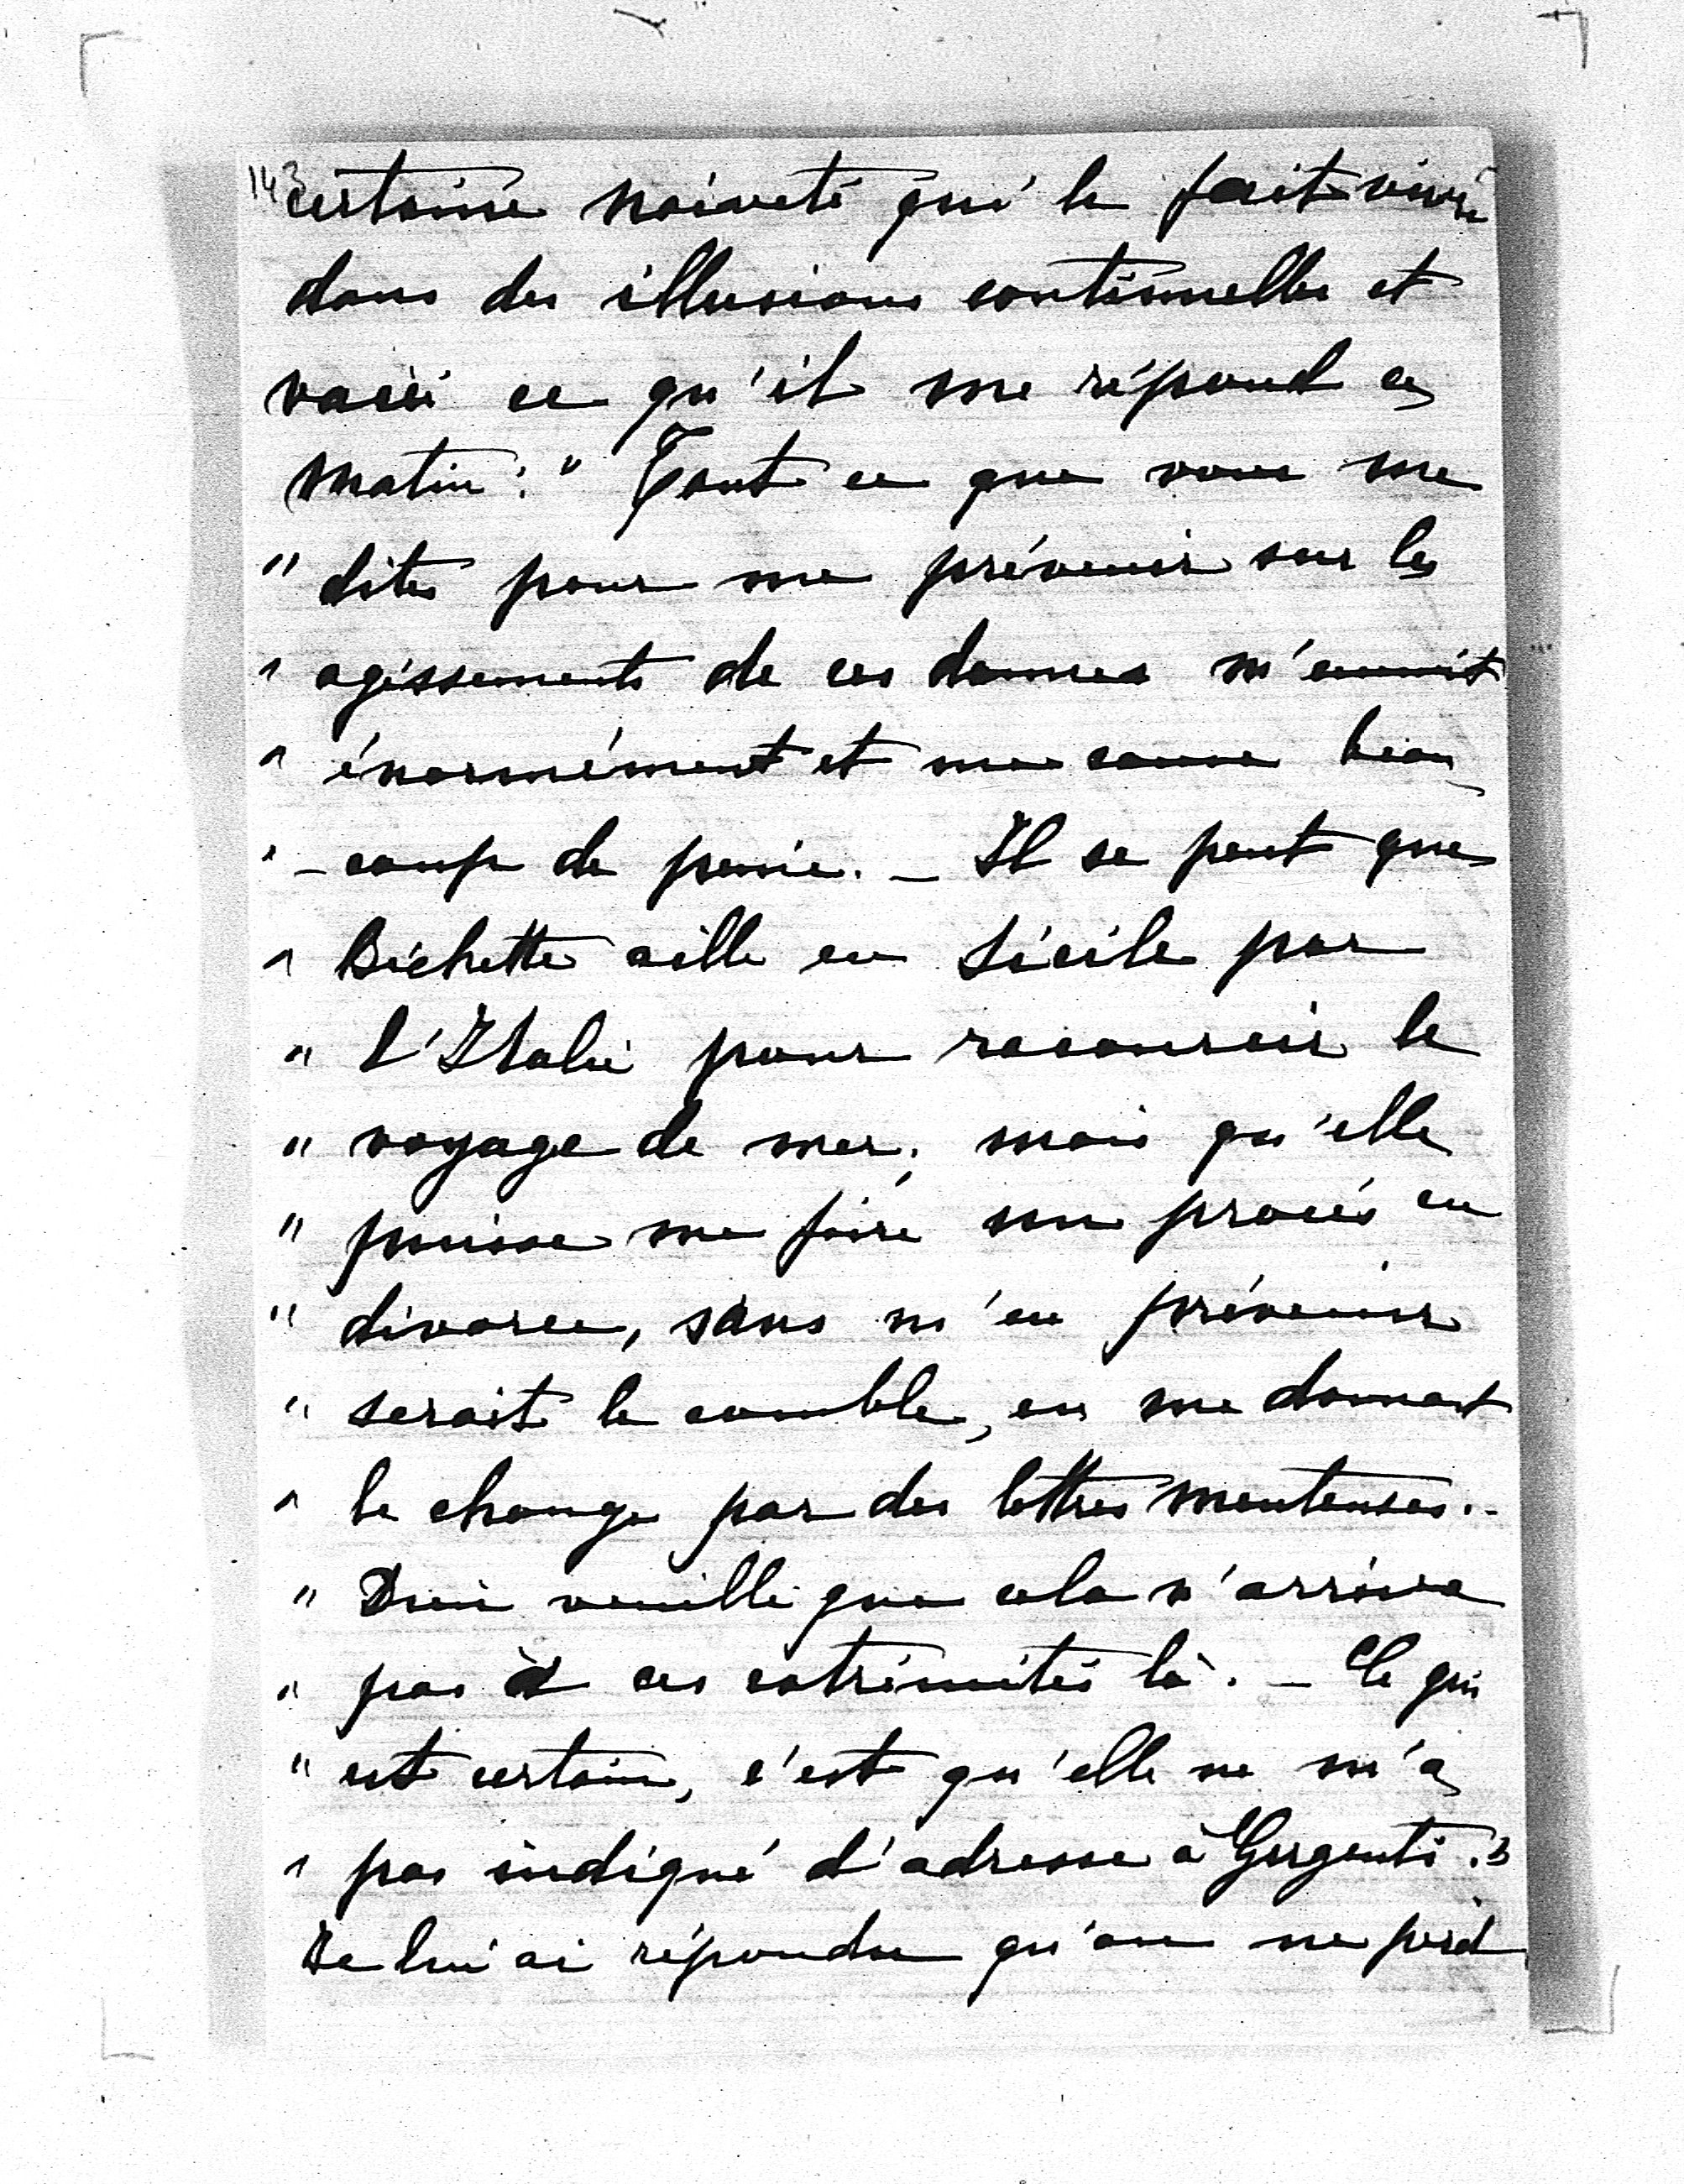 143
certaine naïveté qui le fait vivre
dans des illusions continuelles et
voici ce qu'il me répond ce
matin : " Tout ce que vous me
" dites pour me prévenir sur les
" agissements de ces dames m'ennuit
" énormément et me cause beau
" - coup de peine. - Il se peut que
" Bichette aille en Sicile par
" l'Italie pour raccourcir le
" voyage de mer; mais qu'elle
" puisse me faire un procès en
" divorce, sans m'en prévenir
" serait le comble, en me donnant
" le change par des lettres menteuses. -
" Dieu veuille que cela n'arrive
" pas à ces extrémités là. - Ce qui
" est certain, c'est qu'elle ne m'a
" pas indiqué d'adresse à Girgenti. "
Je lui ai répondu qu'on ne perd